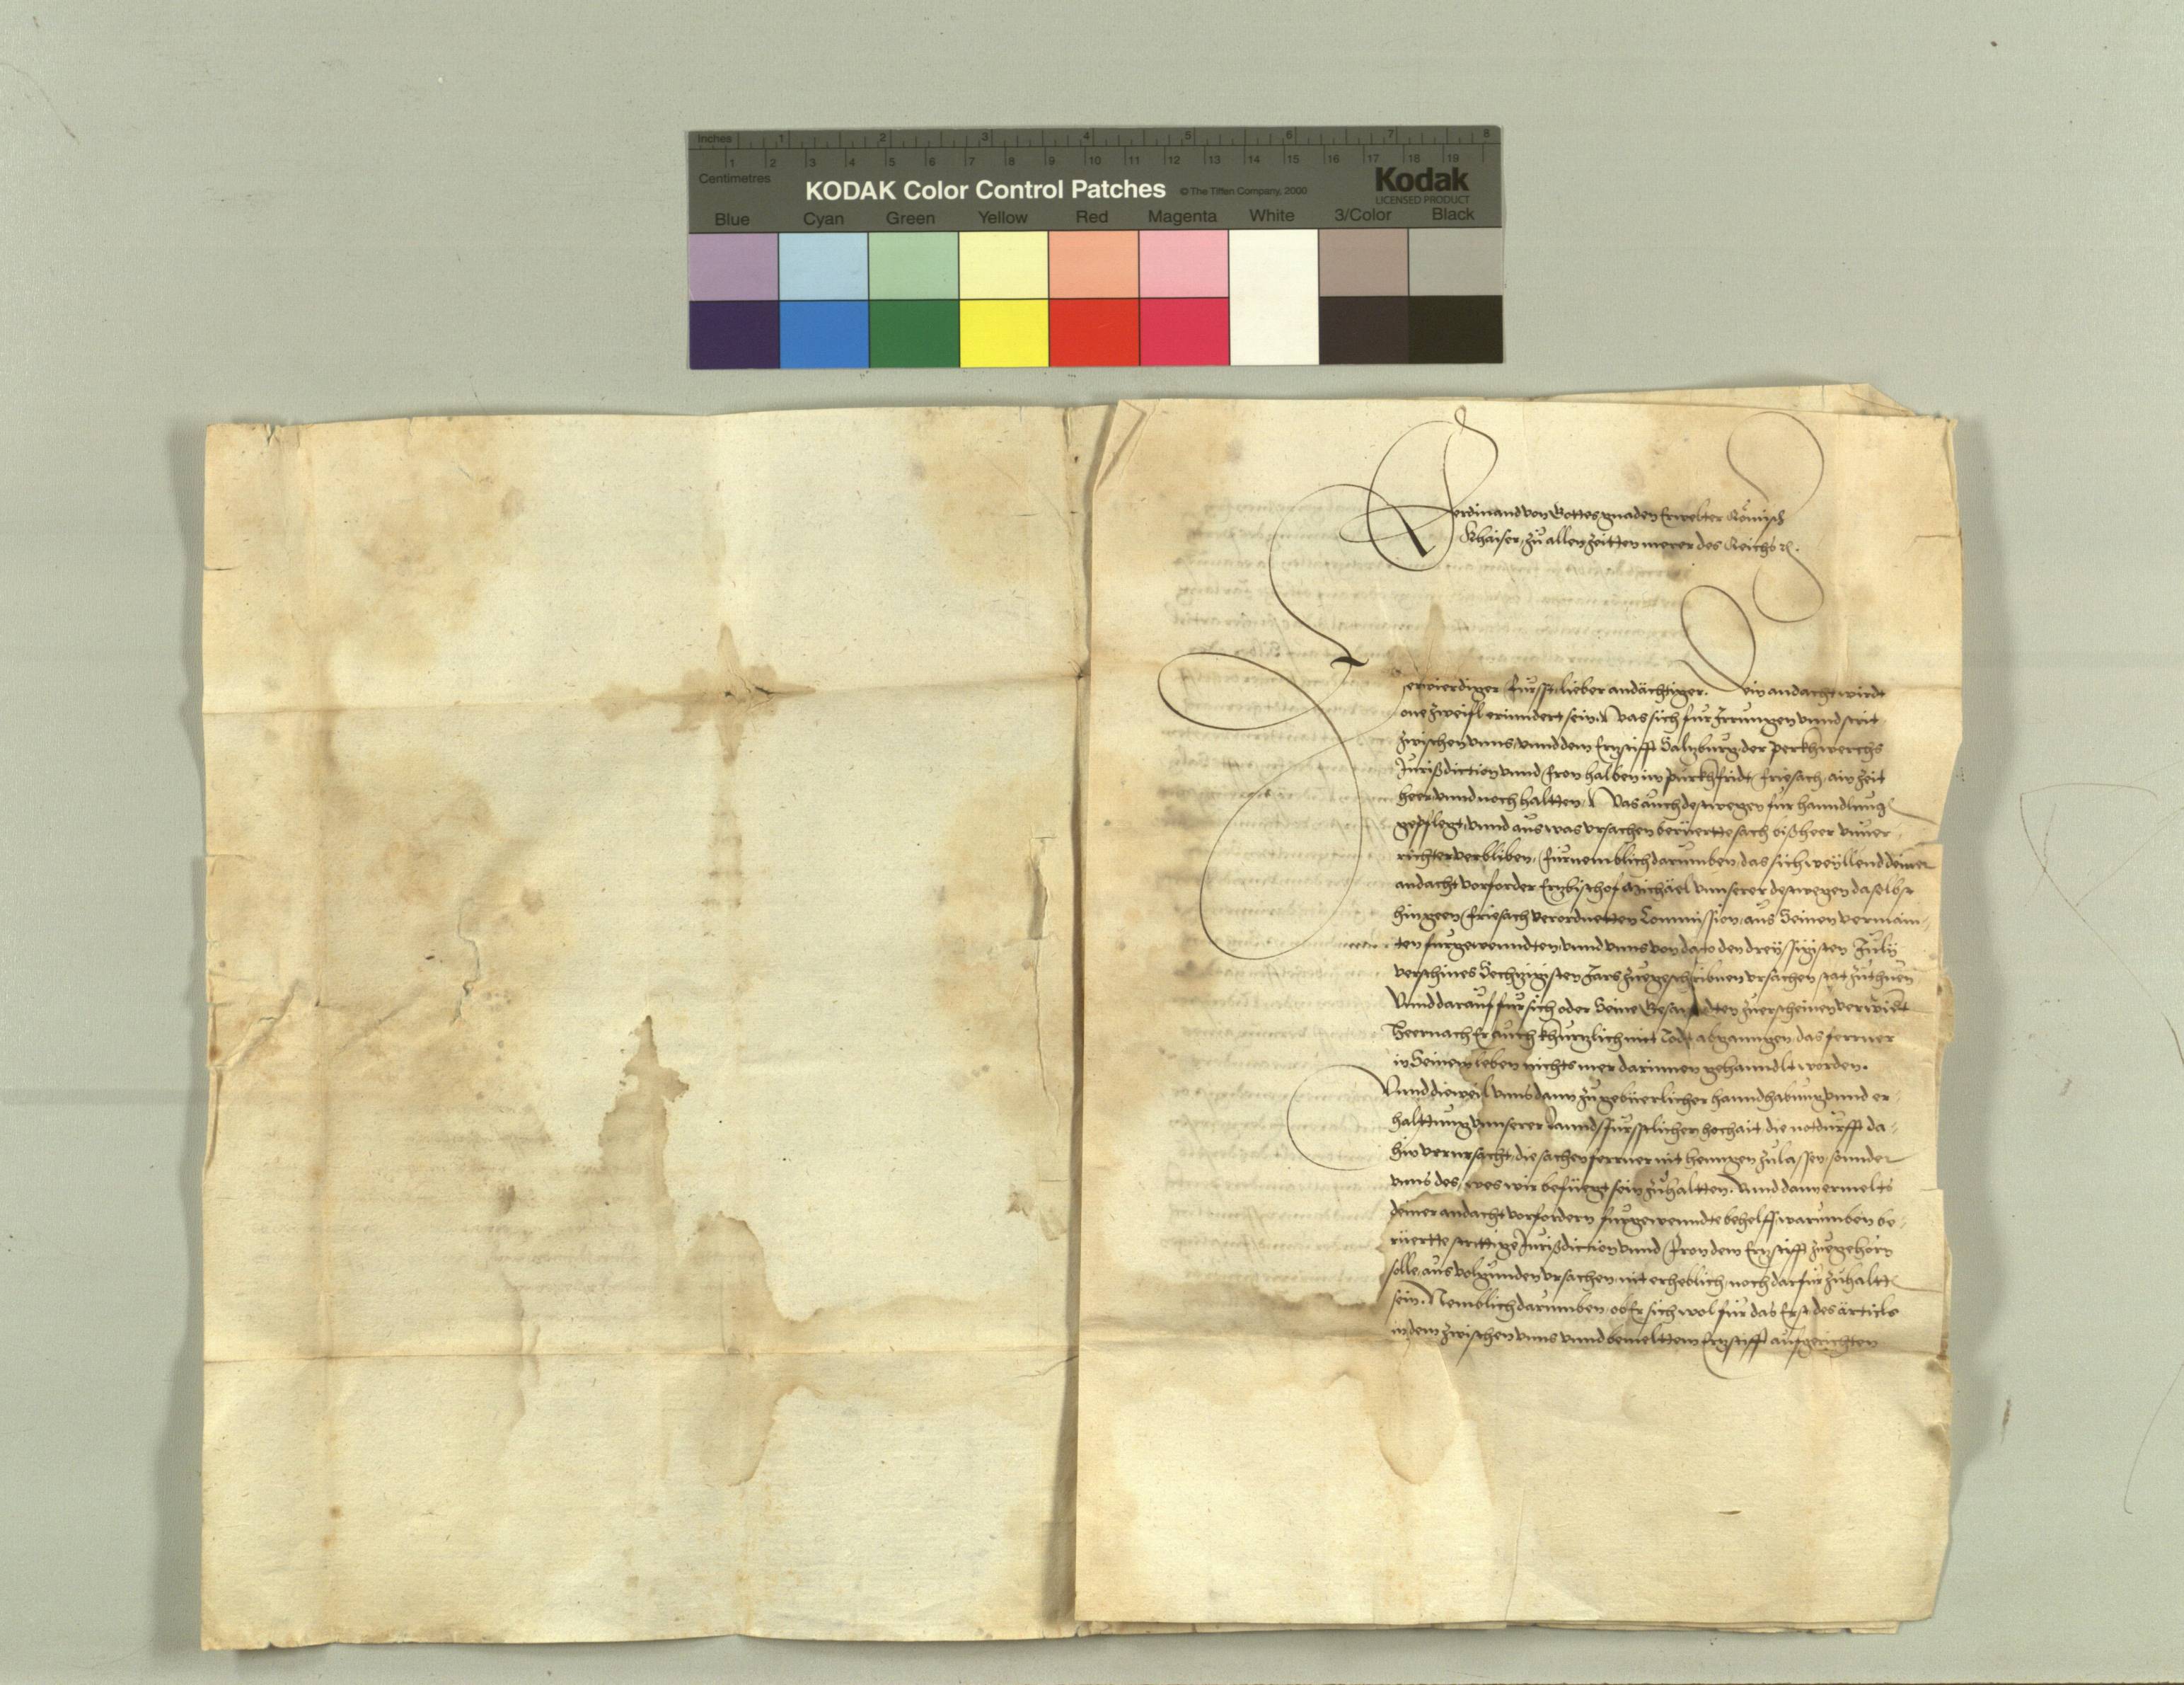 Inches 1 2 3 4 5 6 7 8
1 2 3 4 5 6 7 8 9 10 11 12 13 14 15 16 17 18 19
Centimetres
KODAK Color Control Patches © The Tiffen Company, 2000 Kodak
LICENSED PRODUCT
Blue Cyan Green Yellow Red Magenta White 3/Color Black
Ferdinand von Gottes gnaden Erwelter Römisch
Khaiser, zu allen zeitten merer des Reichs
Erwierdiger Fürsst, lieber andächtiger. Dein andacht wirdt
one zweifl erinndert sein, was sich für Irrungen vnnd strit
zwischen vnns, vnnd dem Erzstifft Salzburg, der Perkhwerchs
Jurisdiction vnnd Fron halben im purkhfridt Friesach, ain zeit
heer vnnd noch haltten, Was auch destwegen für hanndlung
gepflegt, vnnd aus was vrsachen berüertte sach bißheer vnuer-
richter verbliben, Fürnemblich darumben, das sich weyllend deiner
andacht vorforder Erzbischof Michäel vnnserer destwegen daselbst
hin geen Friesach verordnetten Commission, aus Seinen vermain-
ten fürgewenndten, vnnd vnns von dato den dreyssigisten July
verschines Sechzigisten Jars zuegeschribnen vrsachen stat zuthuen
Vnnd darauf für sich oder Seine Gesandten zuerscheinen verwidert
Heernach Er auch khürzlich mit Todt abganngen, das ferrner
in Seinem leben nichts mer darinnen gehanndlt worden.
Vnnd dieweil vnns dann zu gebüerlicher hanndhabung vnnd er-
halttung vnnserer Lanndsfürsstlichen hochait die notdurfft da-
hin verursacht, die sachen ferrner nit henngen zulassen, sonnder
vnns des, wes wir befüegt sein zuhaltten. Vnnd dann ermelts
deiner andacht vorfordern fürgewenndte behelff, warumben be-
rüertte strittige Jurisdiction vnnd Fron dem Erzstifft zuegehörn
solle, aus volgunden vrsachen nit erheblich, noch darfür zuhaltten
sein. Nemblich darumben, ob Er sich wol für das Erst des articls
in dem zwischen vnns vnnd bemelttem Erzstifft aufgerichten